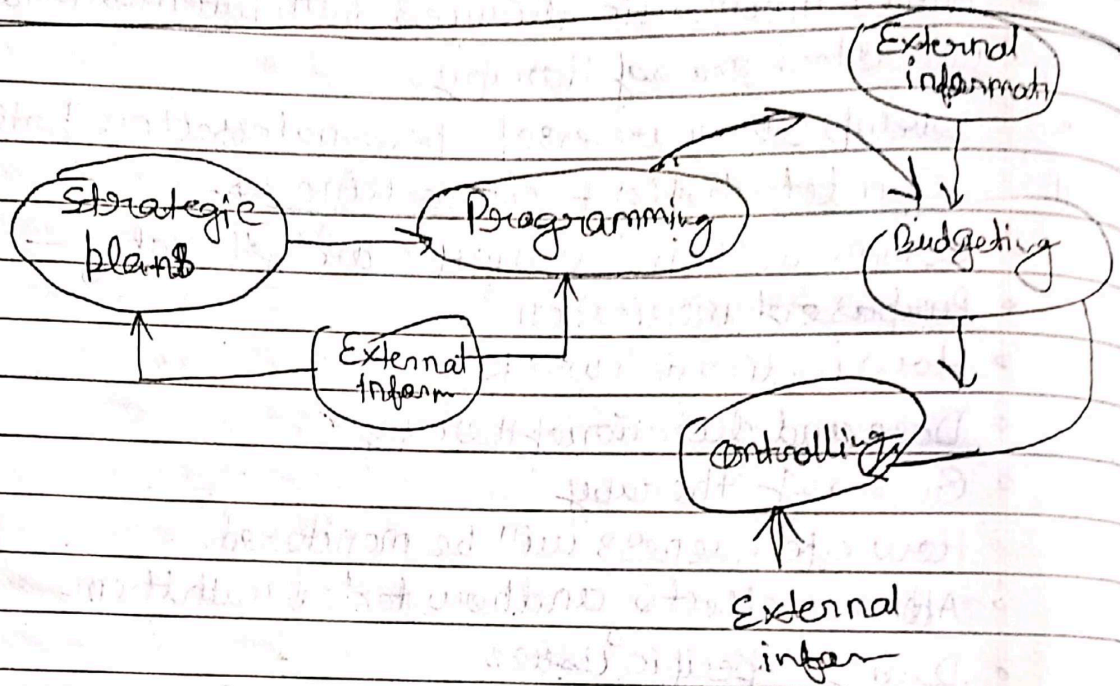 External
informati
Strategic
plans
Programming
Budgeting
External
Inform
Controlling
External
infor